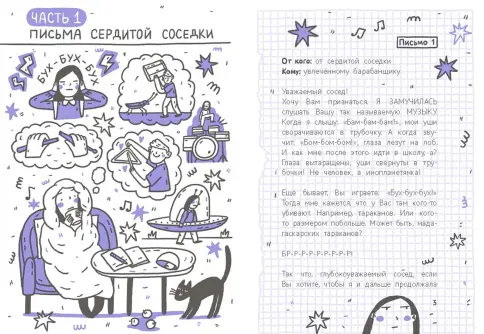 ЧАСТЬ 1
ПИСЬМА СЕРДИТОЙ СОСЕДКИ
БУХ-БУХ-БУХ
Письмо 1
От кого: от сердитой соседки
Кому: увлеченному барабанщику
Уважаемый сосед!
Хочу Вам признаться. Я ЗАМУЧИЛАСЬ
слушать Вашу так называемую МУЗЫКУ.
Когда я слышу: «Бам-бам-бам!», мои уши
сворачиваются в трубочку. А когда зву-
чит: «Бом-бом-бом!», глаза лезут на лоб.
И как мне после этого идти в школу а?
Глаза вытаращены, уши свернуты в тру-
бочки! Не человек, а инопланетянка!
Еще бывает, Вы играете: «Бух-бух-бух!»
Тогда мне кажется, что у Вас там кого-то
убивают. Например, тараканов. Или кого-
то размером побольше. Может быть, мада-
гаскарских тараканов?
БР-Р-Р-Р-Р-Р-Р-Р!
Так что, глубокоуважаемый сосед, если
Вы хотите, чтобы я и дальше продолжала